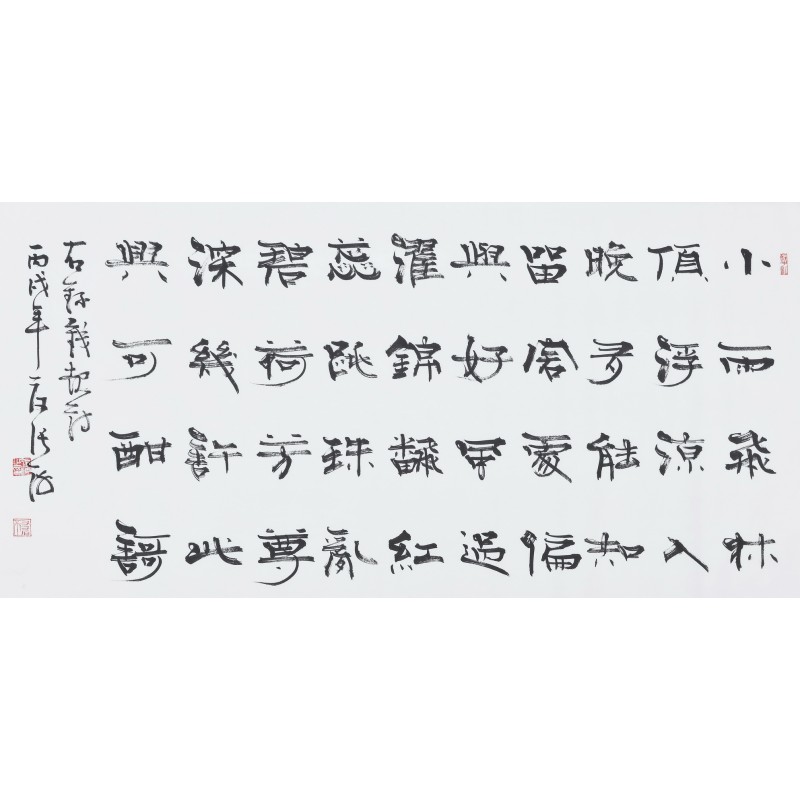 小雨飛林
頂浮涼入
晚多能知
留客處偏
與好風過
濯錦飜紅
蕊跳珠亂
碧荷芳尊
深幾許此
興可酣謌
右錄錢起詩
丙戌年